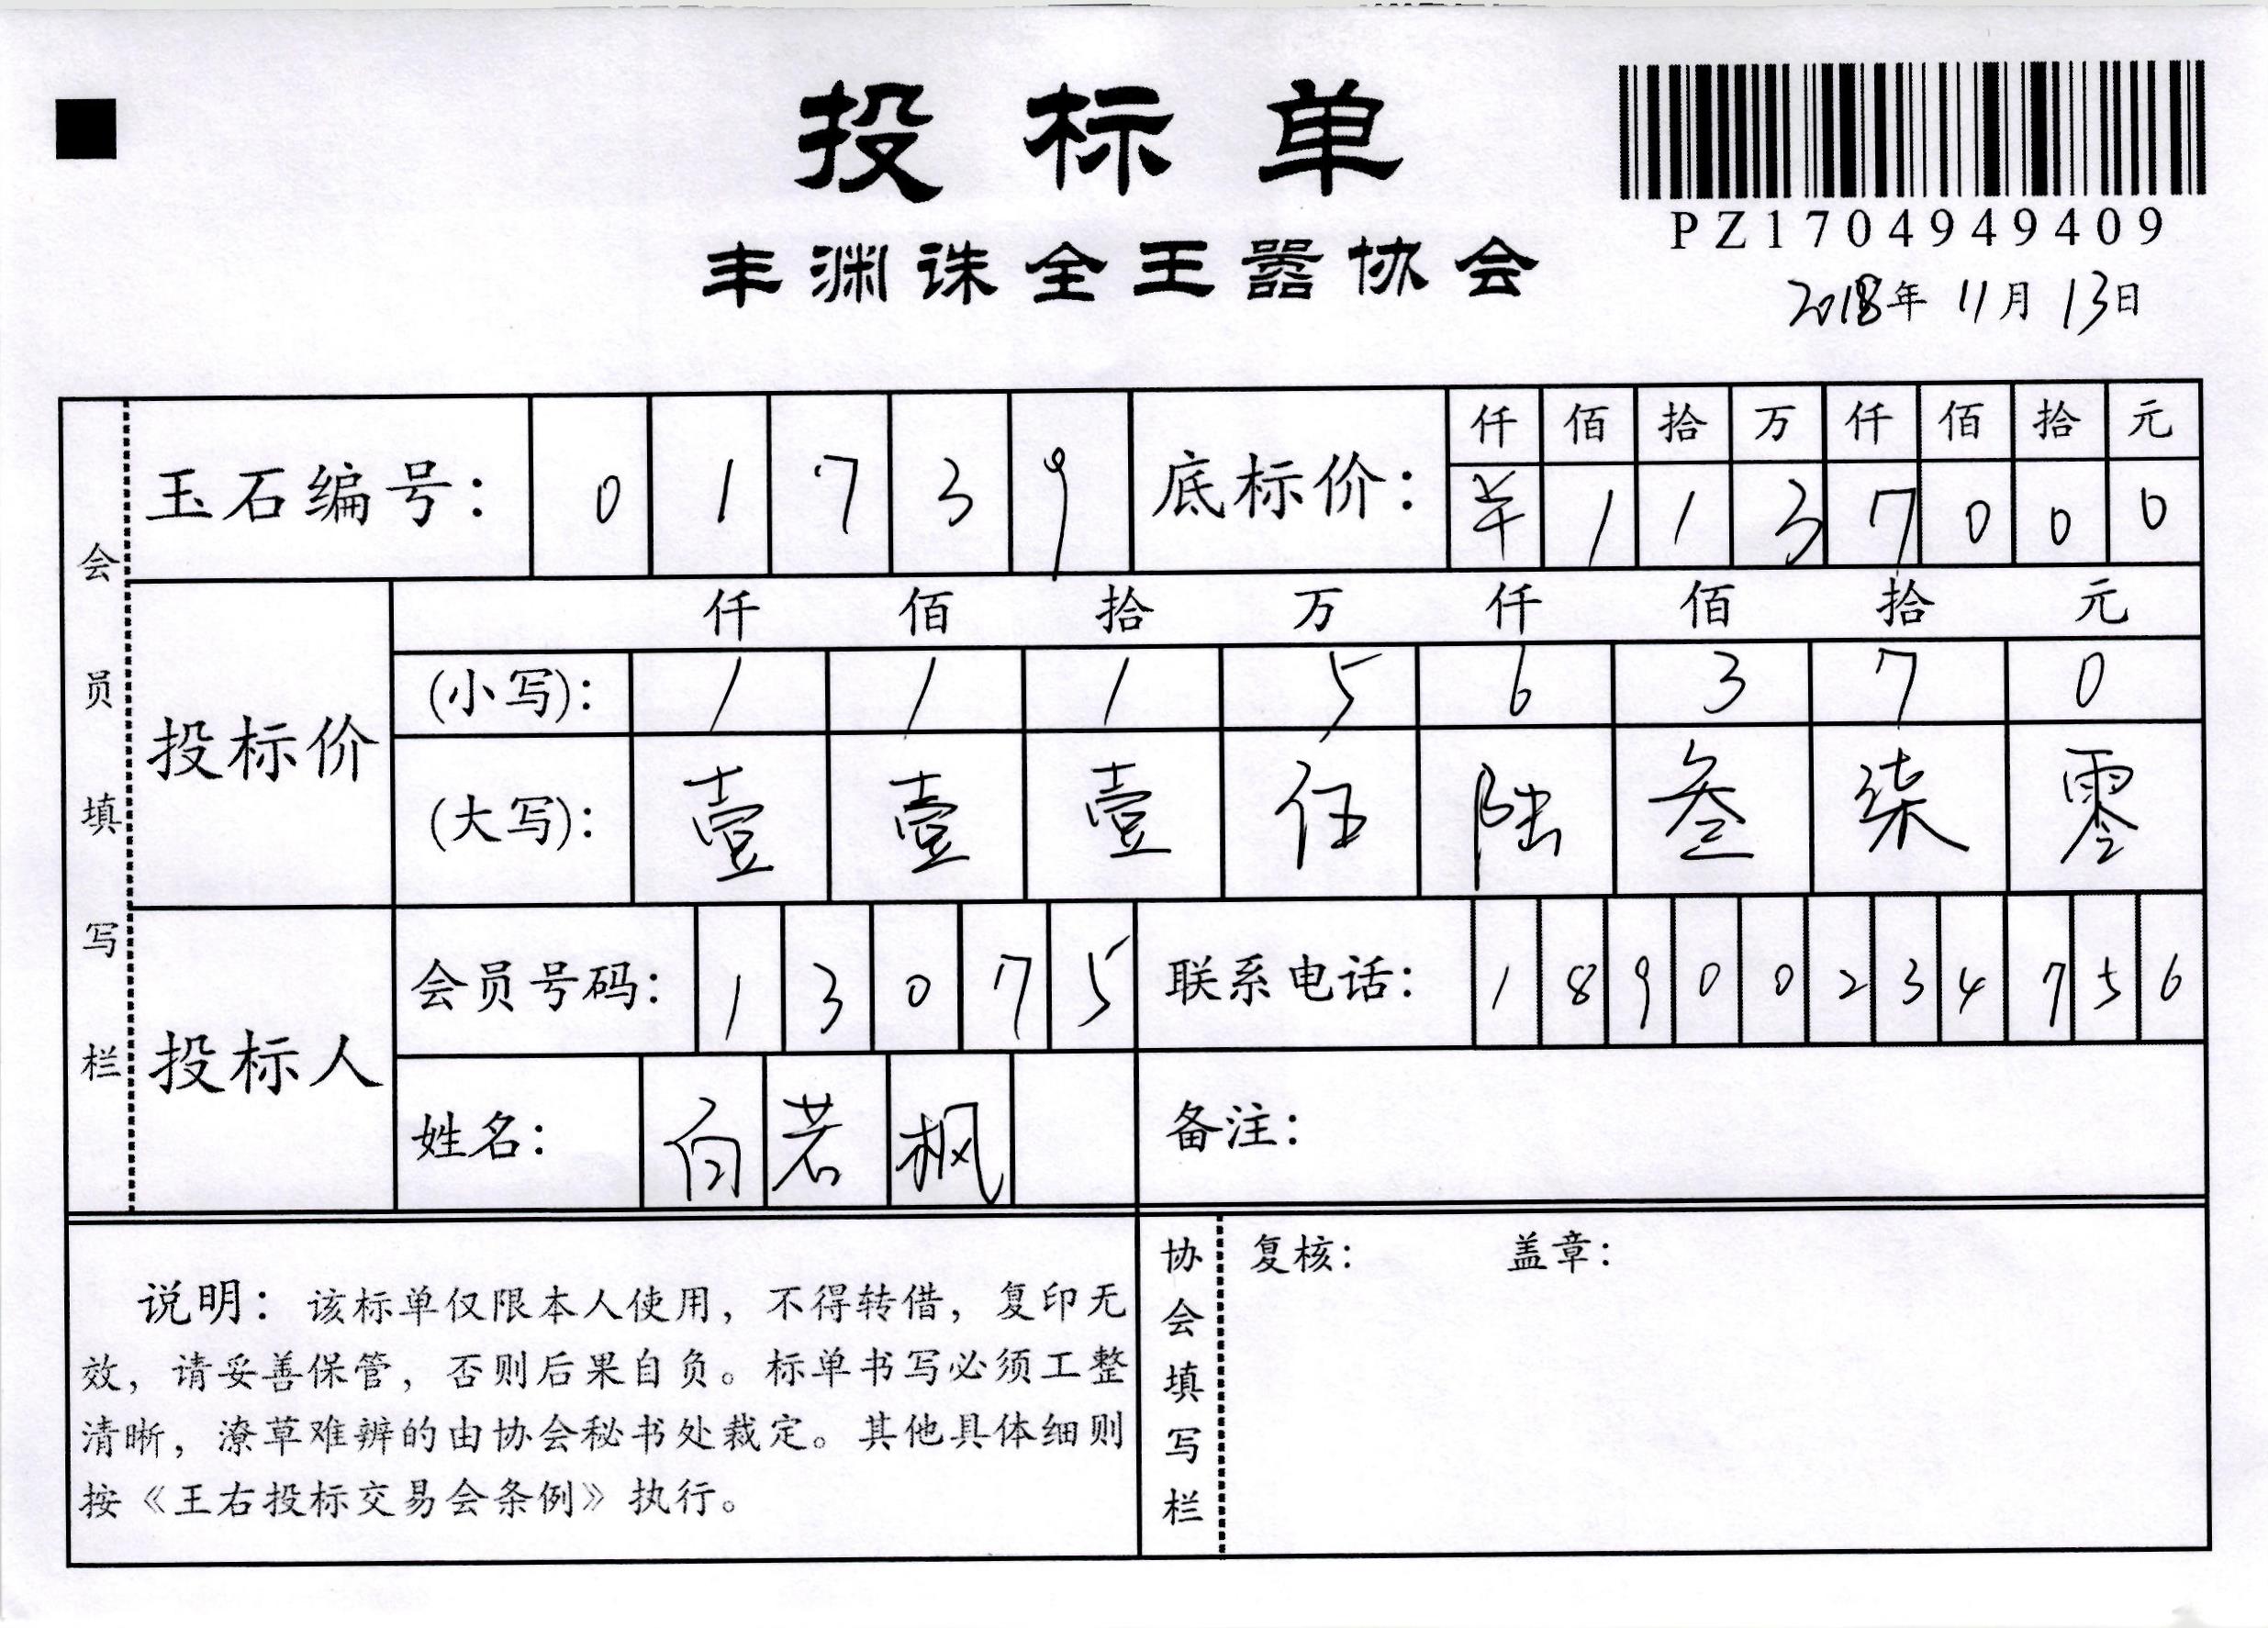 投标单
PZ1704949409
丰渊诛全王嚣协会
2018年 11月 13日
会员填写栏
玉石编号: 0 1 7 3 9 底标价: 仟 佰 拾 万 仟 佰 拾 元
羊 1 1 3 7 0 0 0
投标价 仟 佰 拾 万 仟 佰 拾 元
(小写): 1 1 1 5 6 3 7 0
(大写): 壹 壹 壹 伍 陆 叁 柒 零
投标人 会员号码: 1 3 0 7 5 联系电话: 1 8 9 0 0 2 3 4 7 5 6
姓名: 白 若 枫 备注:
说明: 该标单仅限本人使用, 不得转借, 复印无
效, 请妥善保管, 否则后果自负。标单书写必须工整
清晰, 潦草难辨的由协会秘书处裁定。其他具体细则
按《王右投标交易会条例》执行。
协会填写栏
复核: 盖章: